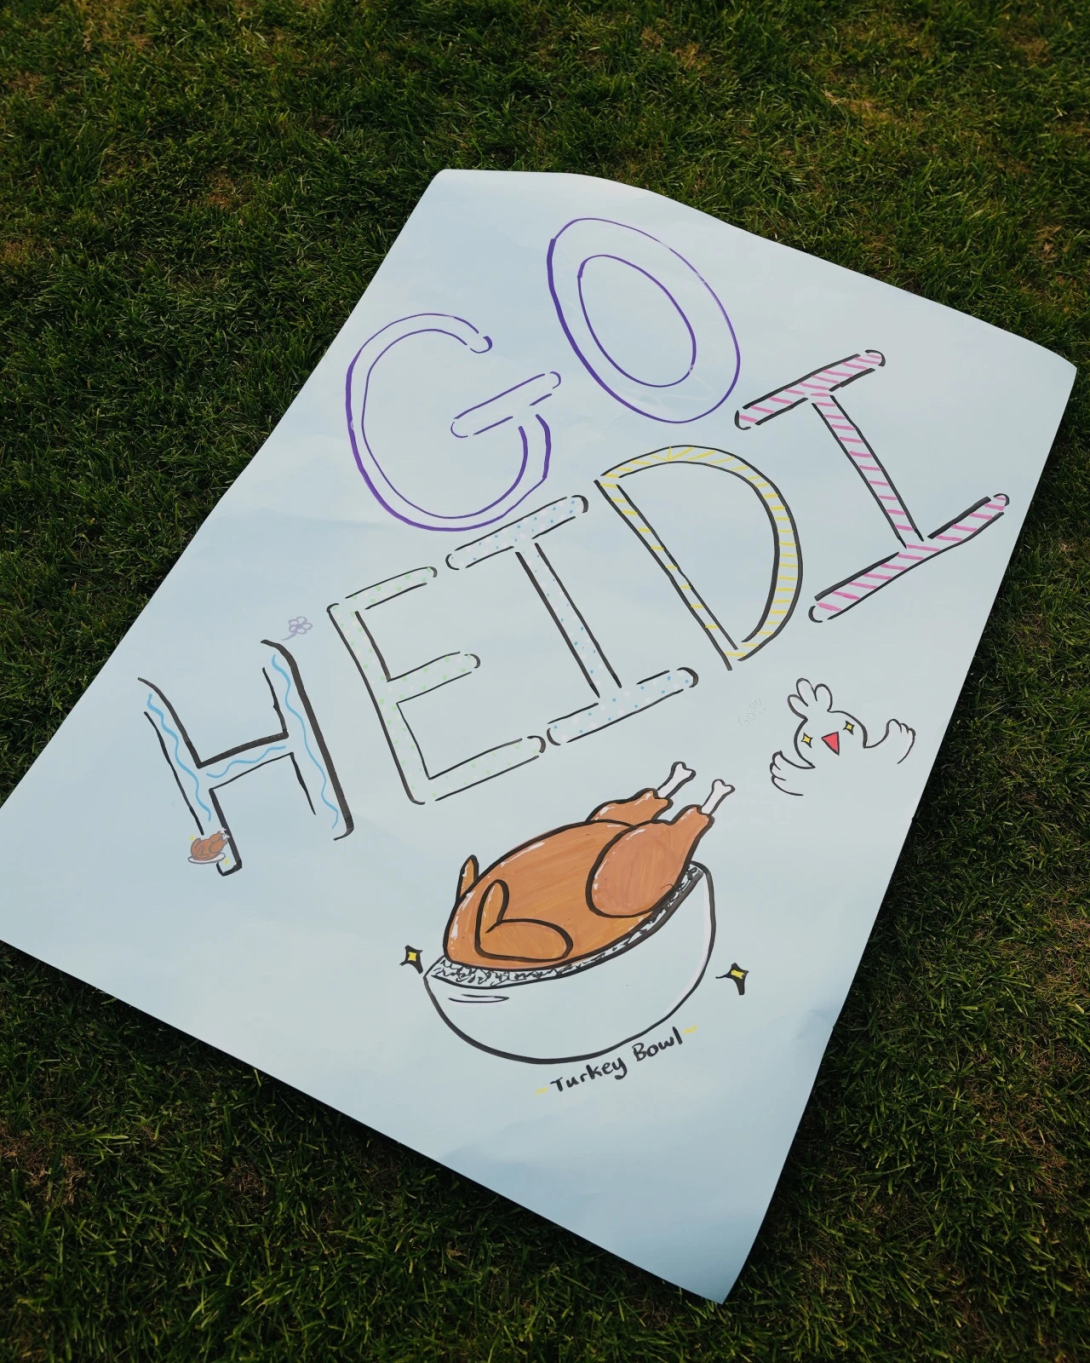 GO
HEIDI
-Turkey Bowl-